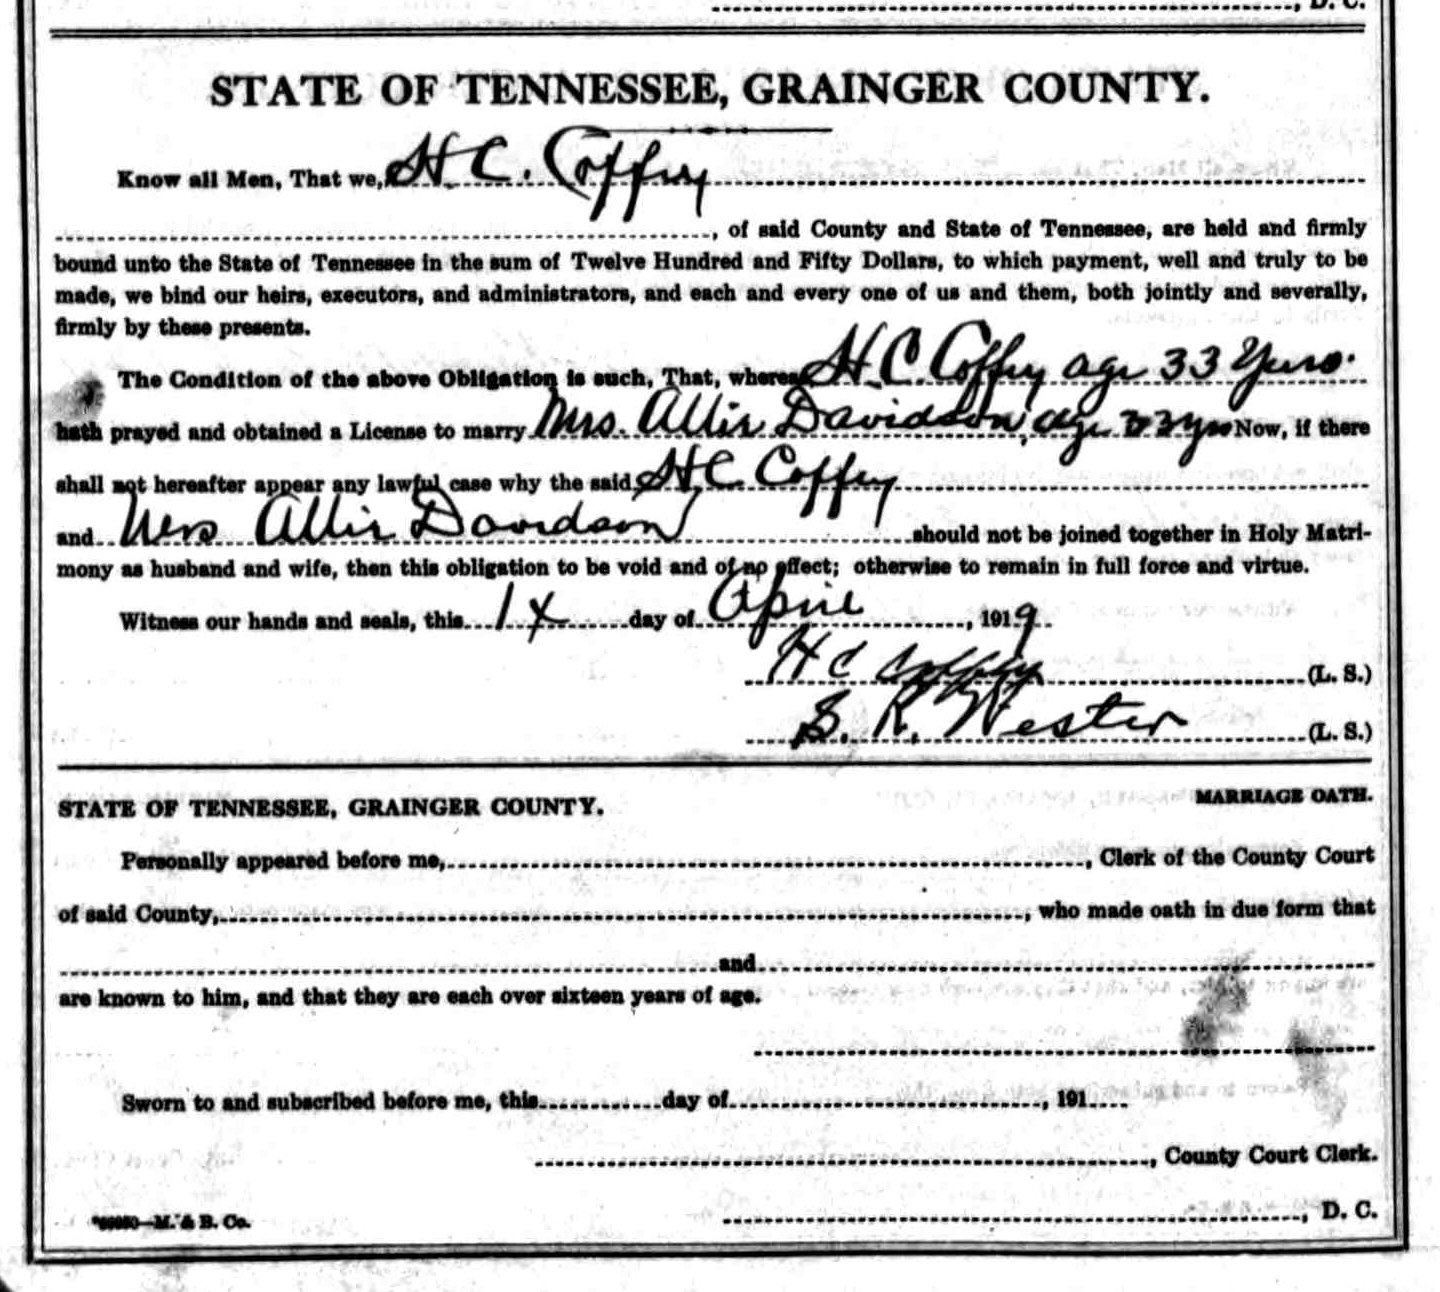 , D. C.
STATE OF TENNESSEE, GRAINGER COUNTY.
Know all Men, That we, H C. Coffey
, of said County and State of Tennessee, are held and firmly
bound unto the State of Tennessee in the sum of Twelve Hundred and Fifty Dollars, to which payment, well and truly to be
made, we bind our heirs, executors, and administrators, and each and every one of us and them, both jointly and severally,
firmly by these presents.
The Condition of the above Obligation is such, That, whereas H. C. Coffey age 33 Years.
hath prayed and obtained a License to marry Mrs. Allie Davidson, age 33 yrs Now, if there
shall not hereafter appear any lawful case why the said H. C. Coffey
and Mrs Allie Davidson should not be joined together in Holy Matri-
mony as husband and wife, then this obligation to be void and of no effect; otherwise to remain in full force and virtue.
Witness our hands and seals, this day of April, 1919.
H C Coffey (L. S.)
S. R. Wester (L. S.)
STATE OF TENNESSEE, GRAINGER COUNTY. MARRIAGE OATH.
Personally appeared before me, , Clerk of the County Court
of said County, , who made oath in due form that
and
are known to him, and that they are each over sixteen years of age.
Sworn to and subscribed before me, this day of , 191
, County Court Clerk.
M. & B. Co. , D. C.